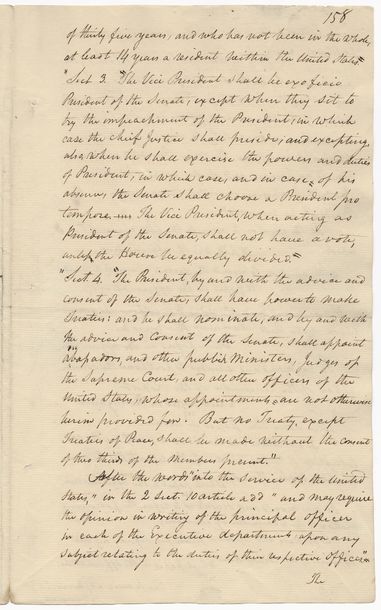 158
of thirty five years, and who has not been in the whole,
at least 14 years a resident within the United States."
"Sect 3. "The Vice President shall be ex officio
President of the Senate, except when they sit to
try the impeachment of the President, in which
case the Chief Justice shall preside, and excepting
also when he shall exercise the powers and duties
of President, in which case, and in case of his
absence, the Senate shall choose a President pro
tempore — The Vice President, when acting as
President of the Senate, shall not have a vote,
unless the House be equally divided."
"Sect 4. "The President, by and with the advice and
consent of the Senate, shall have power to make
Treaties: and he shall nominate, and by and with
the advice and consent of the Senate, shall appoint
ambassadors, and other public Ministers, Judges of
the Supreme Court, and all other officers of the
United States, whose appointments are not otherwise
herein provided for. But no Treaty, except
Treaties of Peace, shall be made without the consent
of two thirds of the Members present."
After the words "into the service of the United
States," in the 2 Sect: 10 article add "and may require
the opinion in writing of the principal officer
in each of the Executive departments upon any
subject relating to the duties of their respective offices"
The